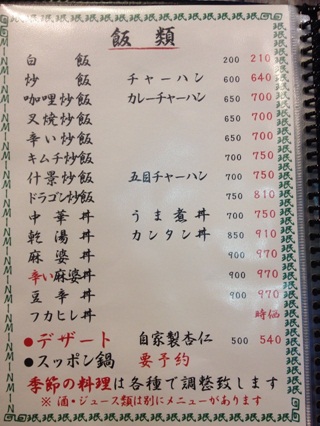 飯類
白飯 200 210
炒飯 チャーハン 600 640
咖哩炒飯 カレーチャーハン 650 700
叉焼炒飯 650 700
辛い炒飯 650 700
キムチ炒飯 700 750
什景炒飯 五目チャーハン 700 750
ドラゴン炒飯 750 810
中華丼 うま煮丼 700 750
乾湯丼 カンタン丼 850 910
麻婆丼 900 970
辛い麻婆丼 900 970
豆辛丼 900 970
フカヒレ丼 時価
●デザート 自家製杏仁 500 540
●スッポン鍋 要予約
季節の料理は各種で調整致します
※ 酒・ジュース類は別にメニューがあります